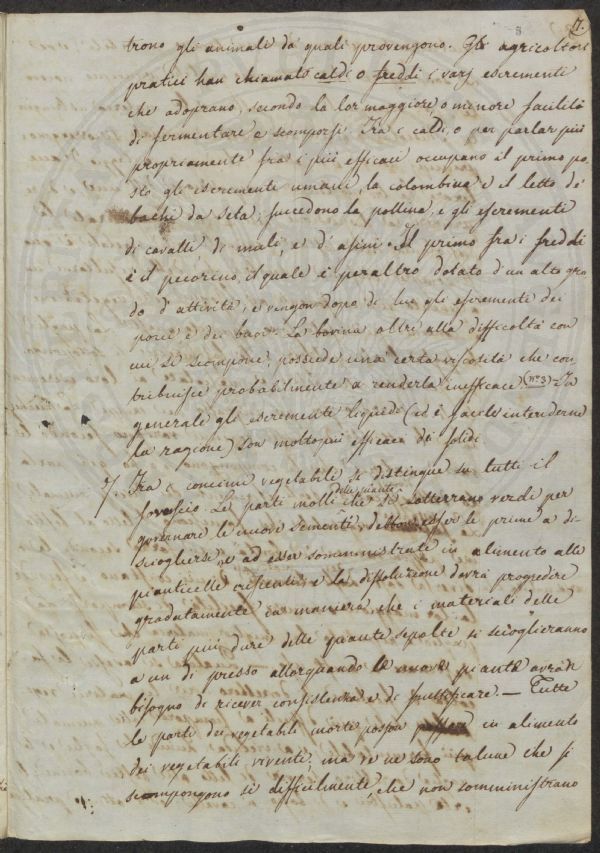 17.
trono gli animali da quali provengono. Gli agricoltori
pratici han chiamato caldi o freddi i varj escrementi
che adoprano, secondo la lor maggiore, o minore facilità
di fermentare e scomporsi. Tra i caldi, o per parlar più
propriamente fra i più efficaci occupano il primo po-
sto gli escrementi umani, la colombina e il letto de'
bachi da seta; succedono la pollina, e gli escrementi
di cavalli di muli, e d'asini. Il primo fra i freddi
è il pecorino, il quale è peraltro dotato d'un alto gra-
do d'attività, e vengon dopo di lui gli escrementi dei
porci e dei buoi. La bovina oltre alla difficoltà con
cui si scompone, possiede una certa viscosità che con-
tribuisce probabilmente a renderla inefficace (nº 3) In
generale gli escrementi liquidi (ed è facile intenderne
la ragione) son molto più efficaci dei solidi.
7. Tra i concimi vegetabili si distingue su tutti il
sovescio. Le parti molli delle piante che si sotterrano verdi per
governare le nuove sementi, esser le prime a di-
sciogliersi, e ad esser somministrate in alimento alle
pianticelle crescenti, e la dissoluzione dovrà progredire
gradatamente in maniera, che i materiali delle
parti più dure delle piante sepolte si scioglieranno
a un di presso allorquando le nuove piante avran
bisogno di ricever consistenza e di fruttificare. — Tutte
le parti dei vegetabili morti posson in alimento
dei vegetabili viventi, ma ve ne sono talune che si
scompongono sì difficilmente, che non somministrano